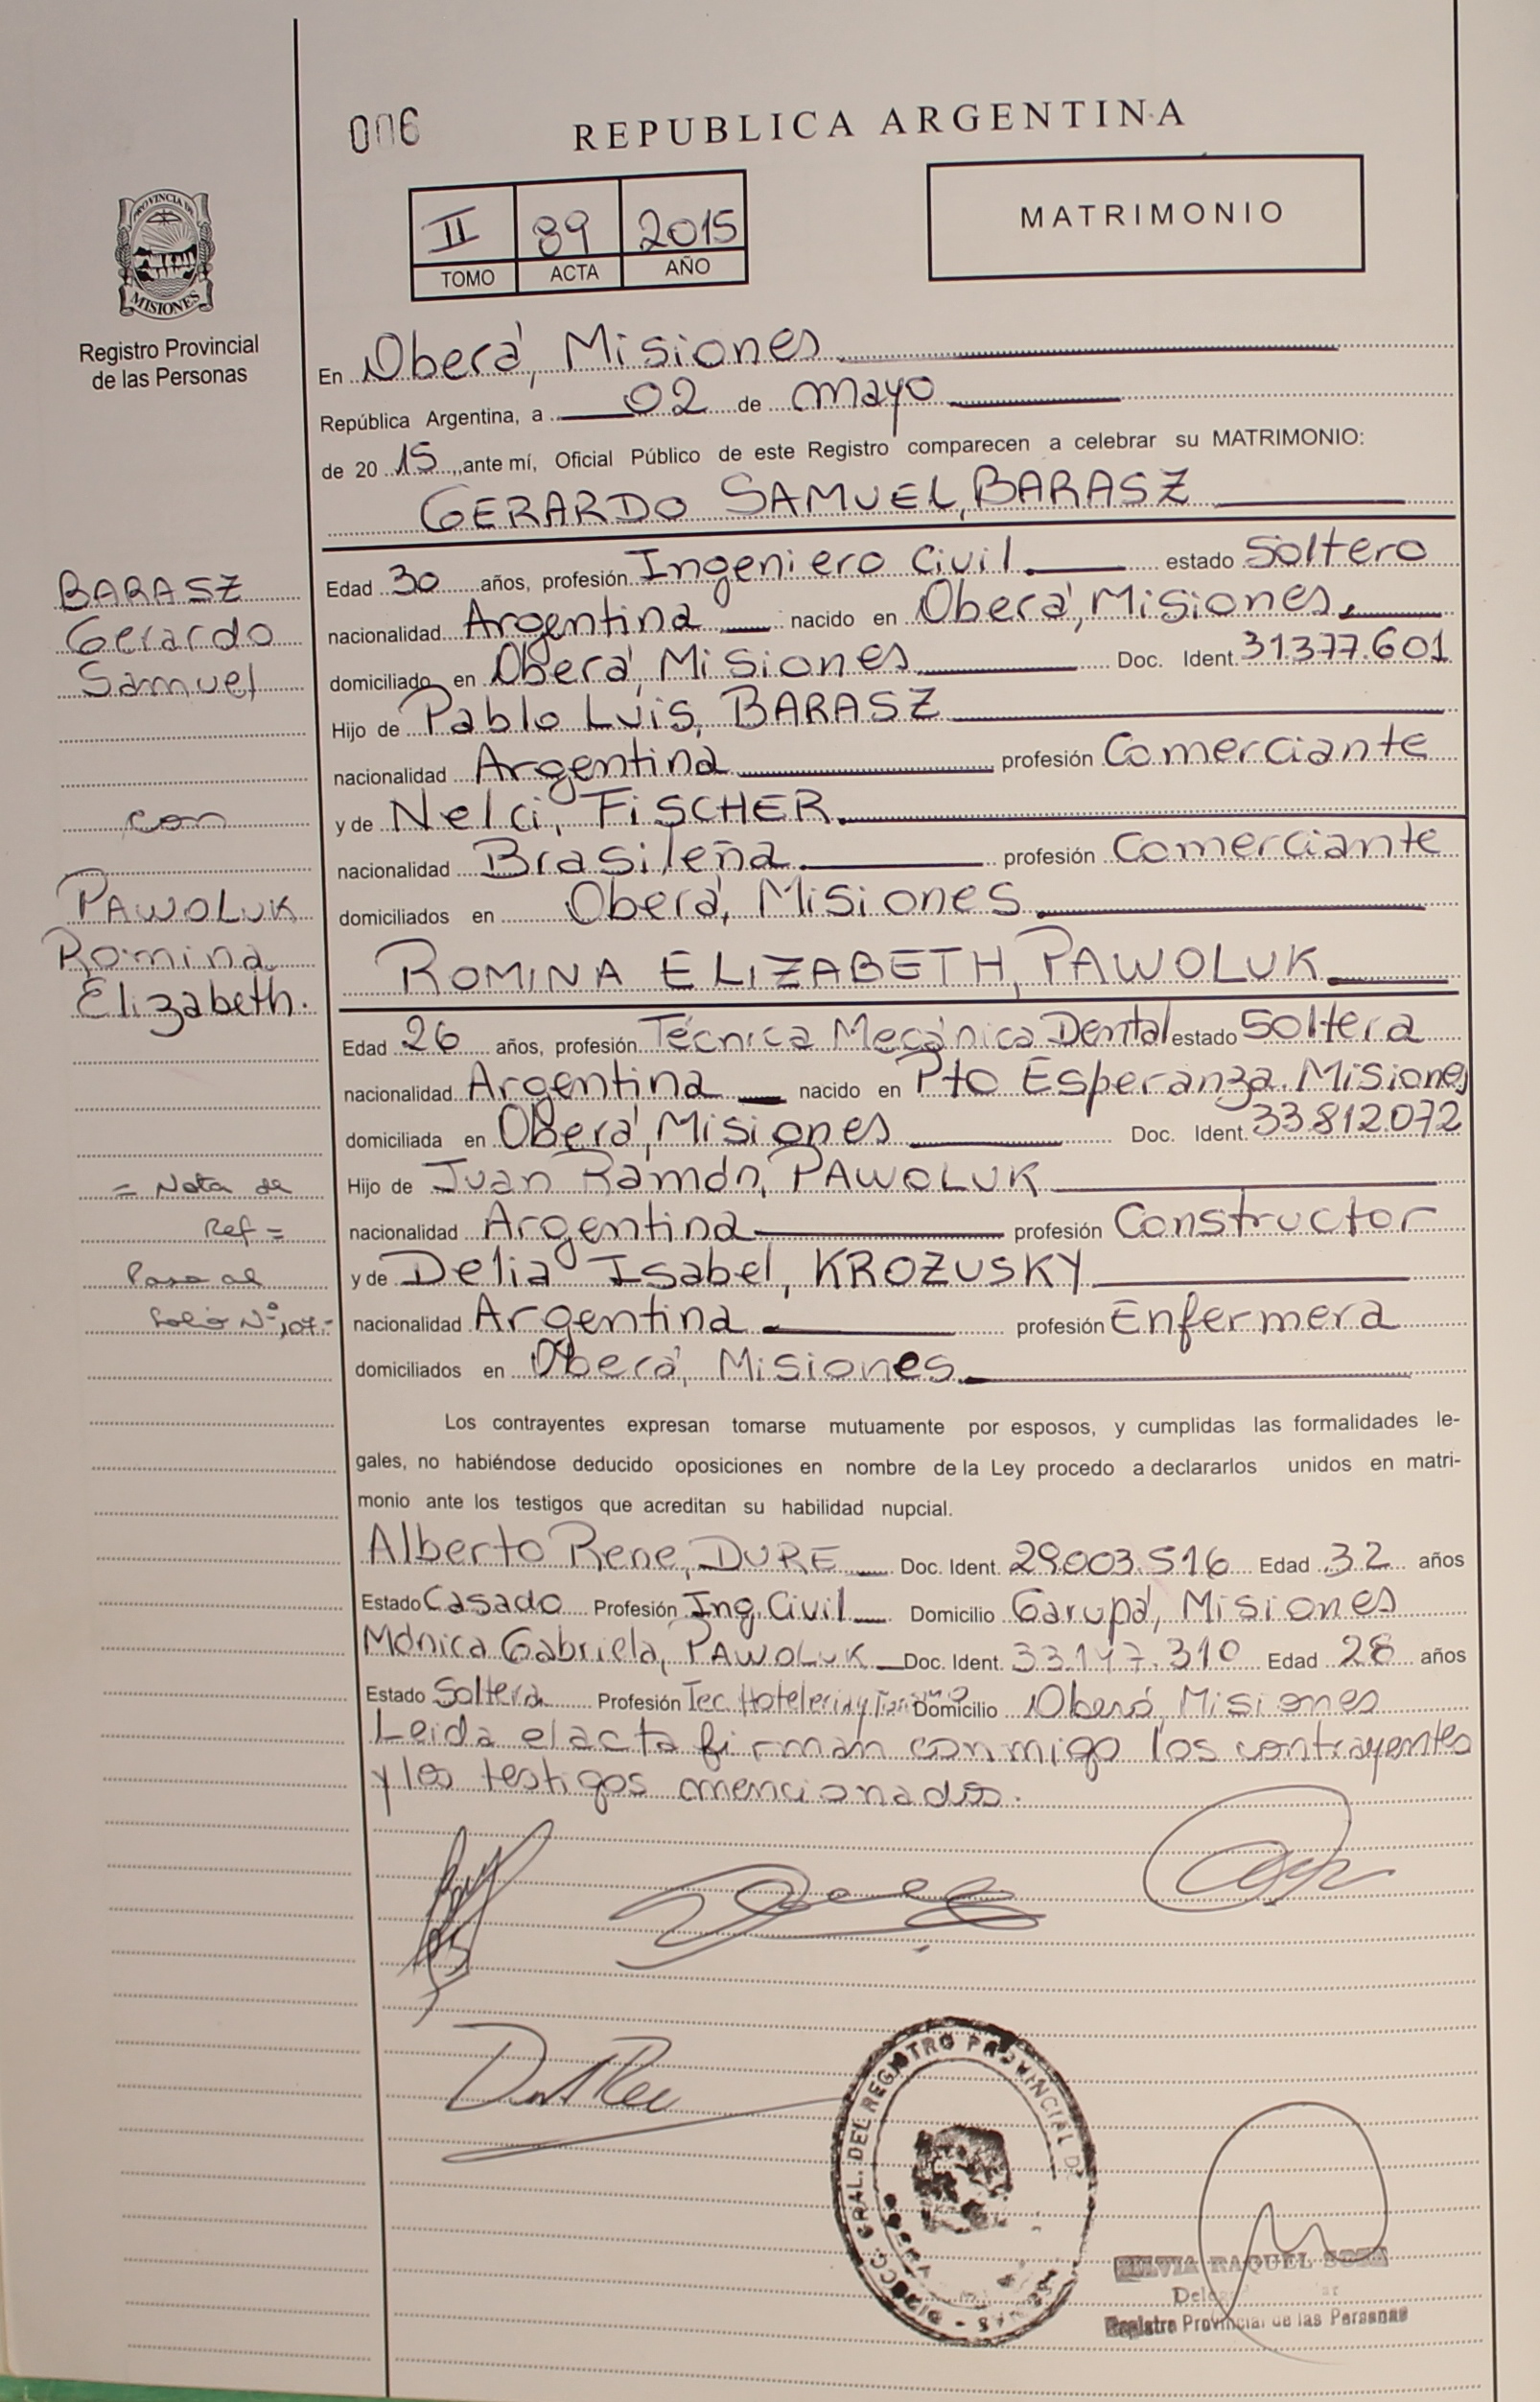 006
REPUBLICA ARGENTINA
II 89 2015
TOMO ACTA AÑO
MATRIMONIO
PROVINCIA DE
MISIONES
Registro Provincial
de las Personas
En Oberá, Misiones
República Argentina, a 02 de mayo
de 20 15, ante mí, Oficial Público de este Registro comparecen a celebrar su MATRIMONIO:
GERARDO SAMUEL, BARASZ
BARASZ
Gerardo
Samuel
con
PAWOLUK
Romina
Elizabeth.
= Nota de
Ref =
Pasa al
folio Nº 107.-
Edad 30 años, profesión Ingeniero Civil. estado Soltero
nacionalidad Argentina nacido en Oberá, Misiones.
domiciliado en Oberá, Misiones Doc. Ident. 31.377.601
Hijo de Pablo Luis, BARASZ
nacionalidad Argentina profesión Comerciante
y de Nelci, FiSCHER.
nacionalidad Brasileña profesión Comerciante
domiciliados en Oberá, Misiones
ROMINA ELIZABETH, PAWOLUK
Edad 26 años, profesión Técnica Mecánica Dental estado Soltera
nacionalidad Argentina nacido en Pto Esperanza. Misiones
domiciliada en Oberá, Misiones Doc. Ident. 33.812.072
Hijo de Juan Ramón, PAWOLUK
nacionalidad Argentina profesión Constructor
y de Delia Isabel, KROZUSKY
nacionalidad Argentina profesión Enfermera
domiciliados en Oberá, Misiones
Los contrayentes expresan tomarse mutuamente por esposos, y cumplidas las formalidades le-
gales, no habiéndose deducido oposiciones en nombre de la Ley procedo a declararlos unidos en matri-
monio ante los testigos que acreditan su habilidad nupcial.
Alberto Rene, DURE Doc. Ident. 29.003.516 Edad 32 años
Estado Casado Profesión Ing. Civil Domicilio Garupá, Misiones
Mónica Gabriela, PAWOLUK Doc. Ident. 33.147.310 Edad 28 años
Estado Soltera Profesión Tec. Hoteleria y Turismo Domicilio Oberá, Misiones
Leida el acta firman conmigo los contrayentes
y los testigos mencionados.
DIRECC. GRAL. DEL REGISTRO PROVINCIAL DE
RAQUEL SOSA
Registro Provincial de las Personas